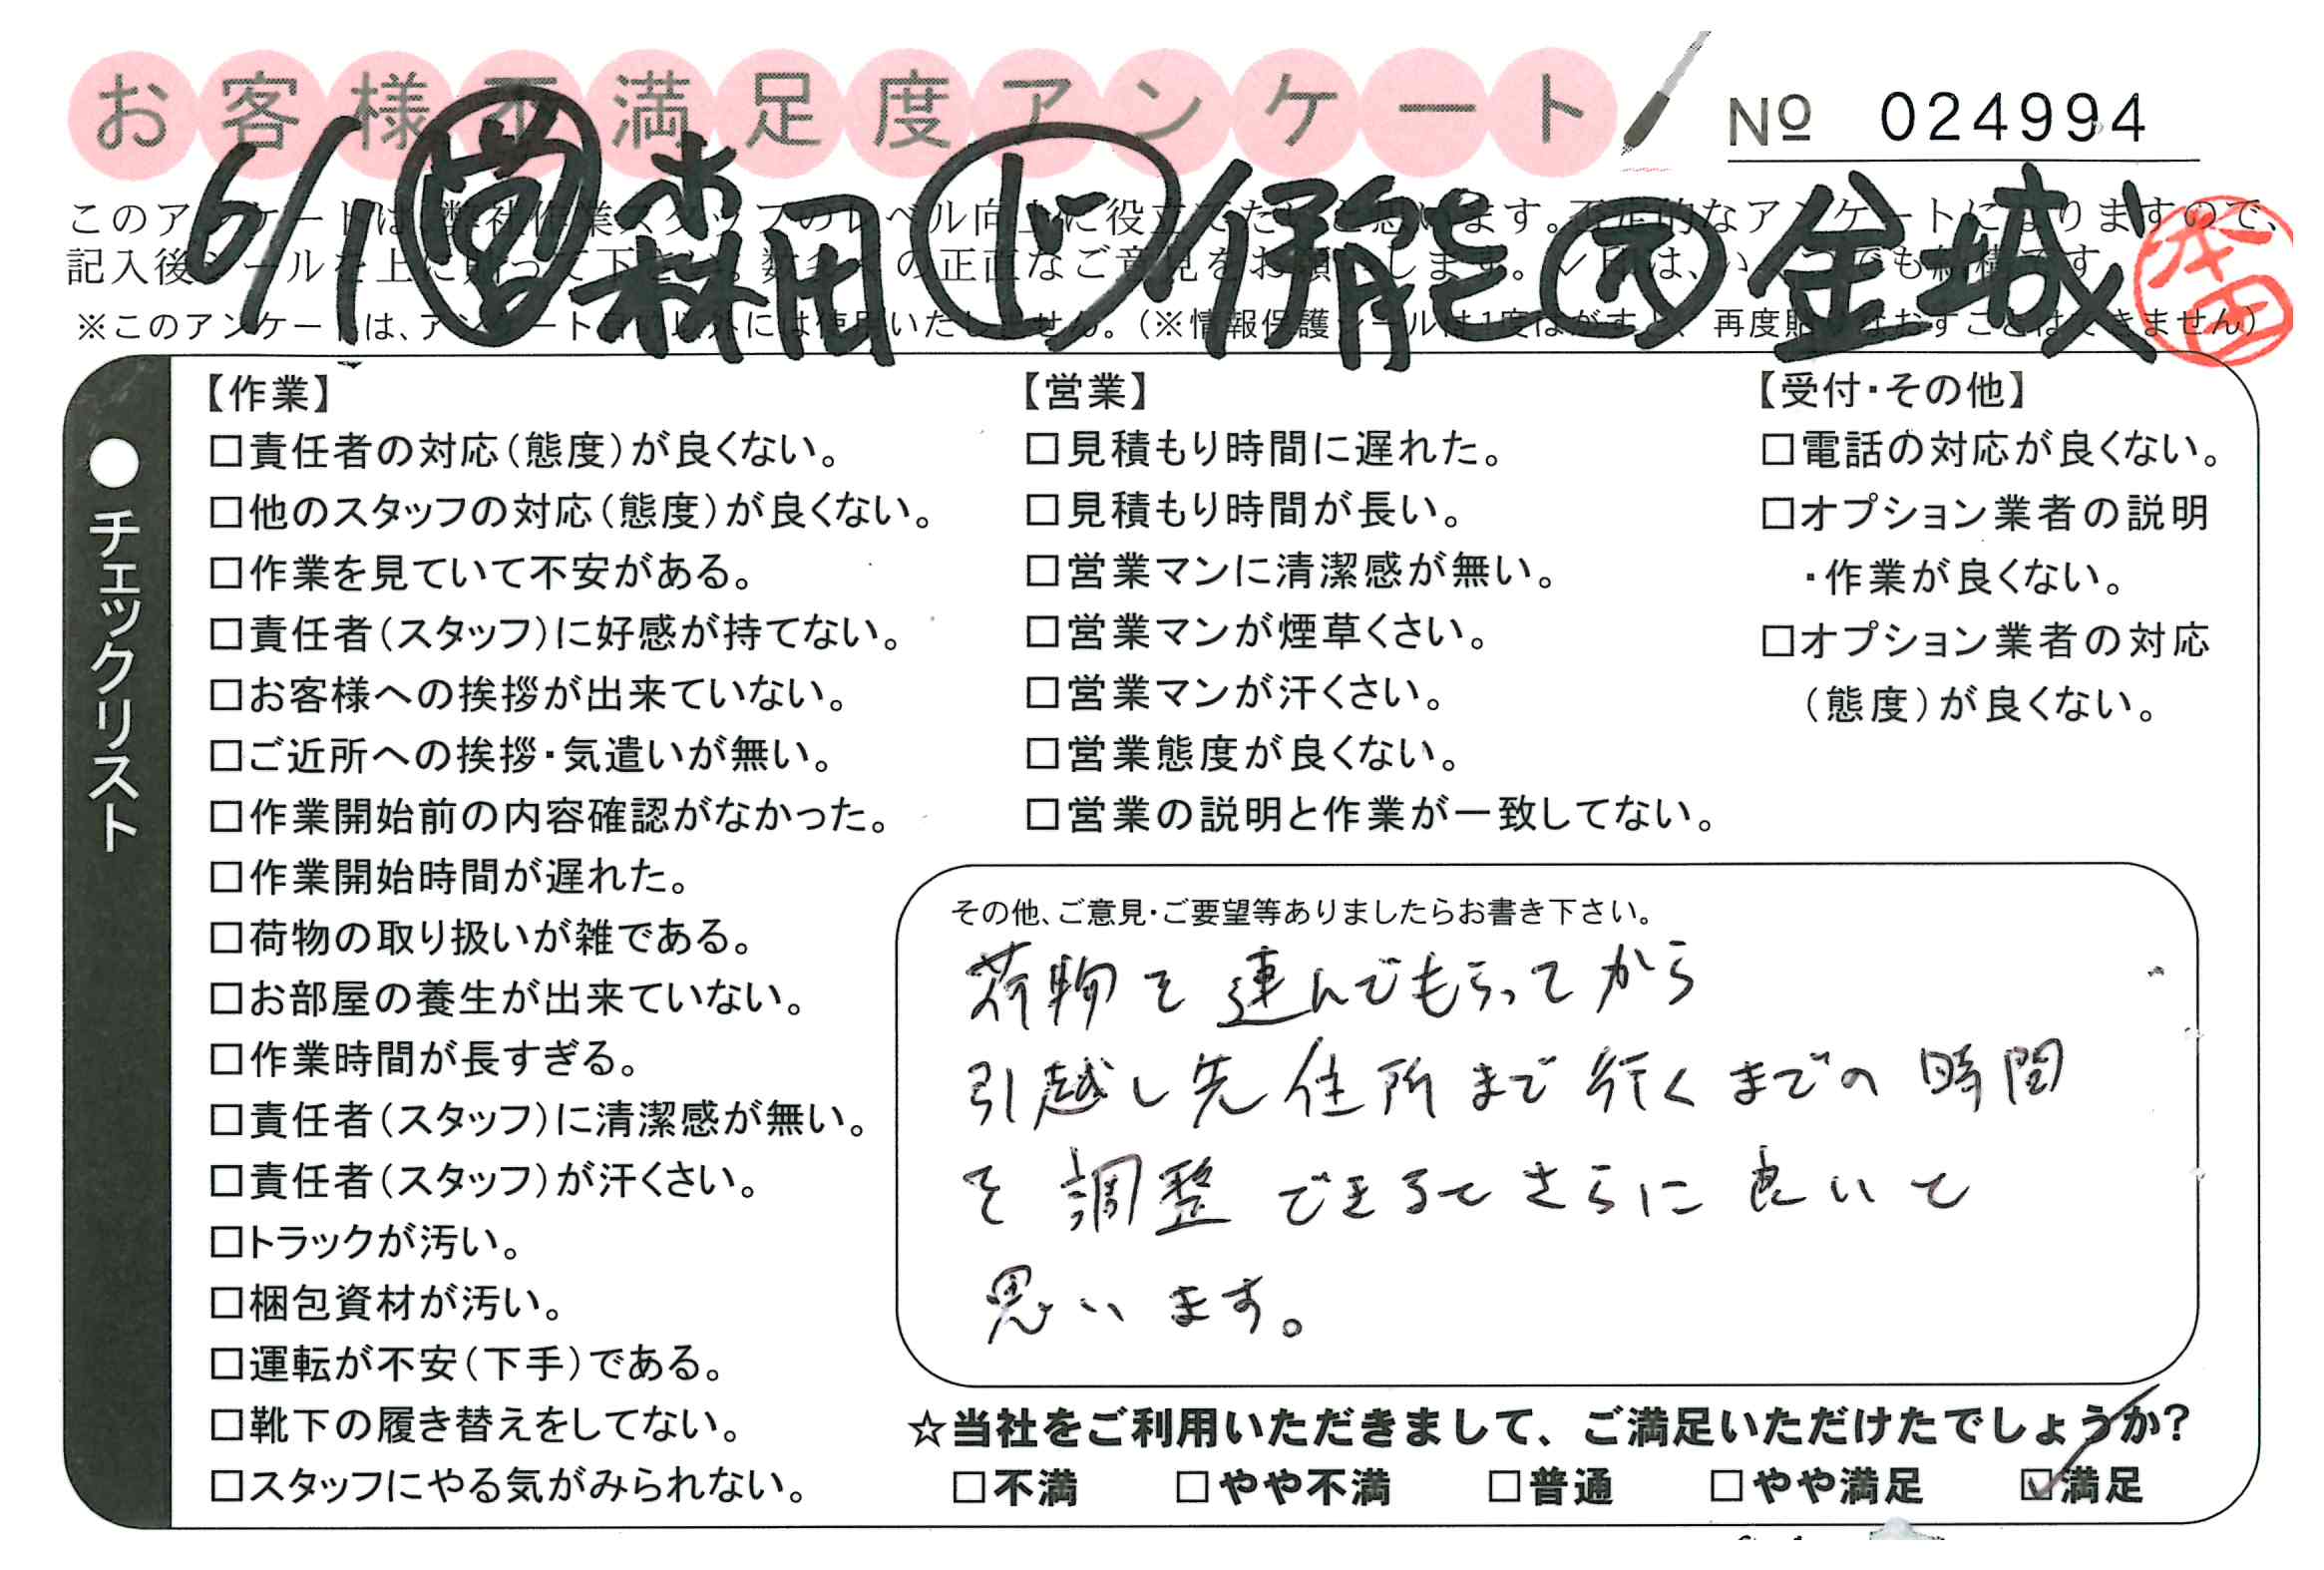 お客様不満足度アンケート
№ 024994
6/1 営 森田 ド 伊能 ス 金城
本田
このアンケートは、弊社作業スタッフのレベル向上に役立てたいと思います。不定的なアンケートになりますので、
記入後シールを上に貼って下さい。数多くの正直なご意見をお願いします。✓印は、いくつでも結構です
※このアンケートは、アンケート目的以外には使用いたしません。（※情報保護シールは1度はがすと、再度貼りなおすことはできません）
●チェックリスト
【作業】
□責任者の対応（態度）が良くない。
□他のスタッフの対応（態度）が良くない。
□作業を見ていて不安がある。
□責任者（スタッフ）に好感が持てない。
□お客様への挨拶が出来ていない。
□ご近所への挨拶・気遣いが無い。
□作業開始前の内容確認がなかった。
□作業開始時間が遅れた。
□荷物の取り扱いが雑である。
□お部屋の養生が出来ていない。
□作業時間が長すぎる。
□責任者（スタッフ）に清潔感が無い。
□責任者（スタッフ）が汗くさい。
□トラックが汚い。
□梱包資材が汚い。
□運転が不安（下手）である。
□靴下の履き替えをしてない。
□スタッフにやる気がみられない。
【営業】
□見積もり時間に遅れた。
□見積もり時間が長い。
□営業マンに清潔感が無い。
□営業マンが煙草くさい。
□営業マンが汗くさい。
□営業態度が良くない。
□営業の説明と作業が一致してない。
【受付・その他】
□電話の対応が良くない。
□オプション業者の説明
・作業が良くない。
□オプション業者の対応
（態度）が良くない。
その他、ご意見・ご要望等ありましたらお書き下さい。
荷物を運んでもらってから
引越し先住所まで行くまでの時間
を調整できるとさらに良いと
思います。
☆当社をご利用いただきまして、ご満足いただけたでしょうか？
□不満 □やや不満 □普通 □やや満足 ☑満足